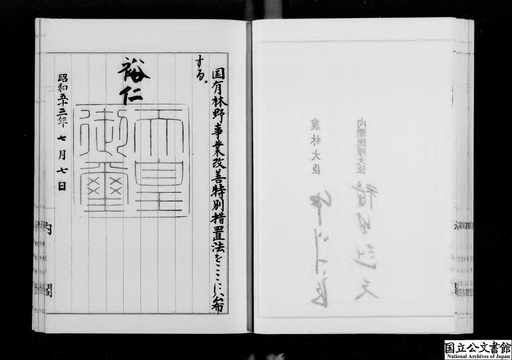 国有林野事業改善特別措置法をここに公布
する。
裕仁
天皇
御璽
昭和五十三年七月七日
内閣
内閣総理大臣
農林大臣
国立公文書館
National Archives of Japan